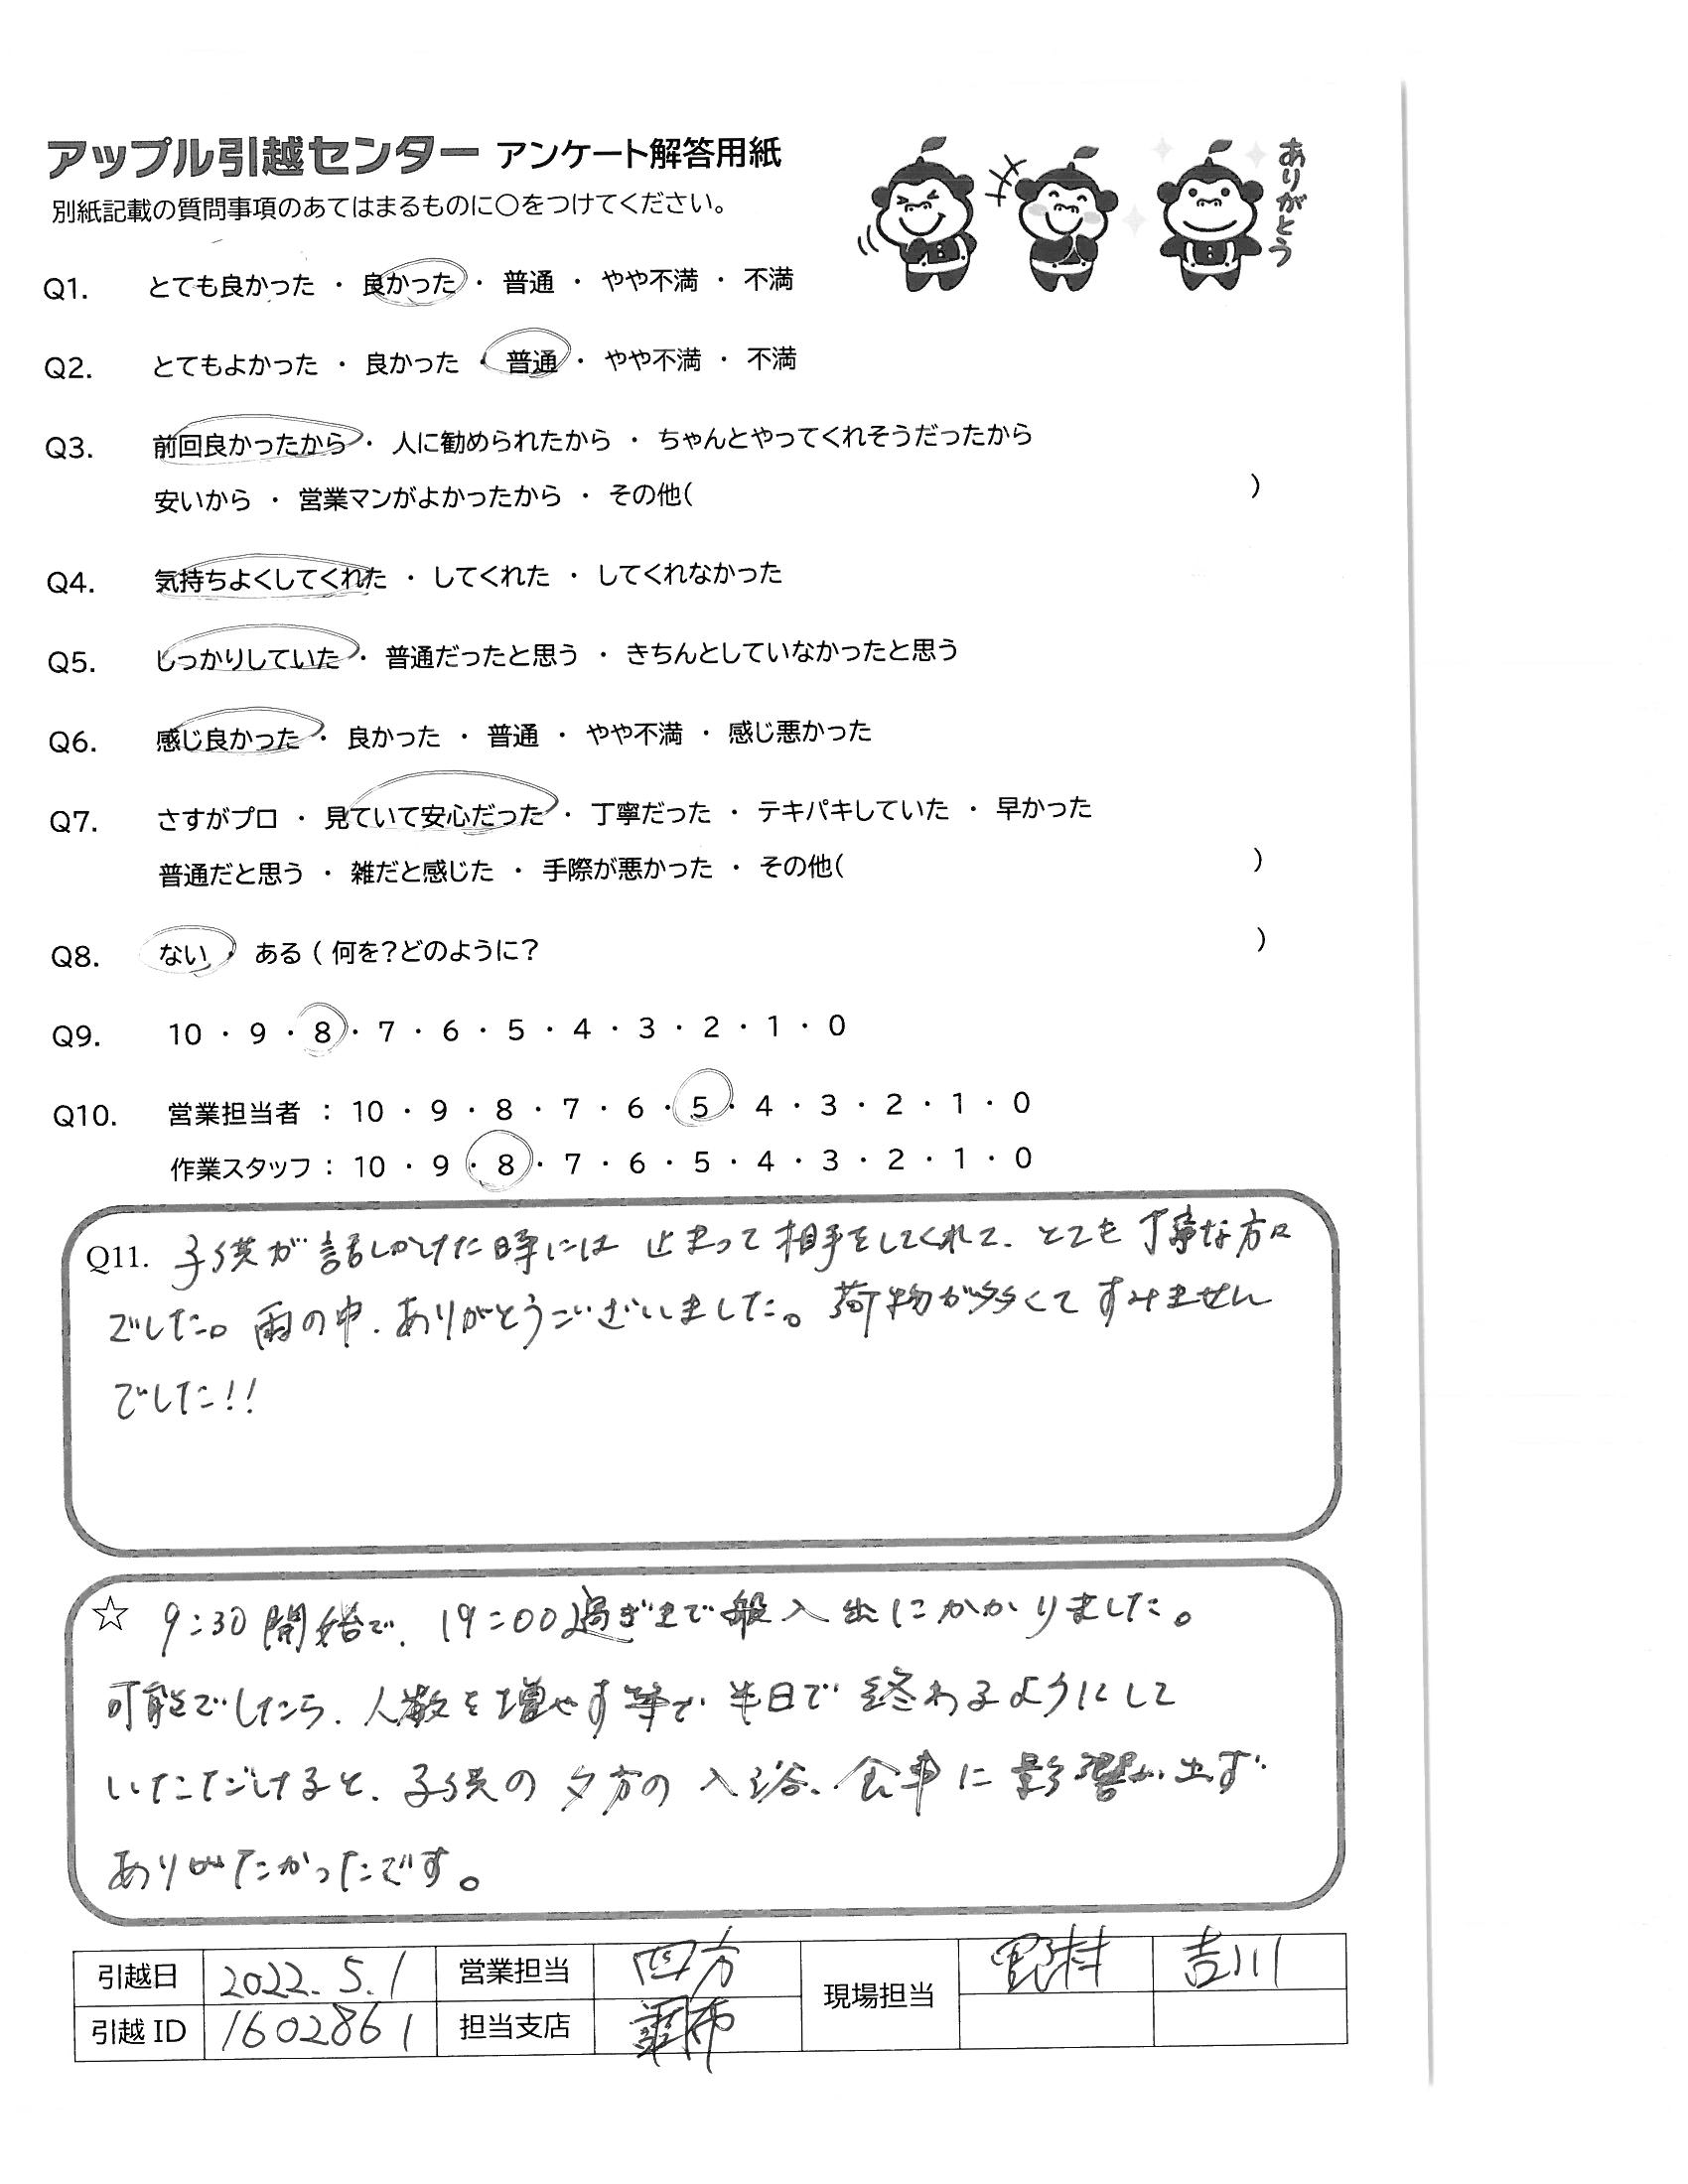 アップル引越センター アンケート解答用紙
別紙記載の質問事項のあてはまるものに○をつけてください。
ありがとう
Q1. とても良かった ・ 良かった ・ 普通 ・ やや不満 ・ 不満
Q2. とてもよかった ・ 良かった ・ 普通 ・ やや不満 ・ 不満
Q3. 前回良かったから ・ 人に勧められたから ・ ちゃんとやってくれそうだったから
安いから ・ 営業マンがよかったから ・ その他( )
Q4. 気持ちよくしてくれた ・ してくれた ・ してくれなかった
Q5. しっかりしていた ・ 普通だったと思う ・ きちんとしていなかったと思う
Q6. 感じ良かった ・ 良かった ・ 普通 ・ やや不満 ・ 感じ悪かった
Q7. さすがプロ ・ 見ていて安心だった ・ 丁寧だった ・ テキパキしていた ・ 早かった
普通だと思う ・ 雑だと感じた ・ 手際が悪かった ・ その他( )
Q8. ない ・ ある ( 何を?どのように? )
Q9. 10 ・ 9 ・ 8 ・ 7 ・ 6 ・ 5 ・ 4 ・ 3 ・ 2 ・ 1 ・ 0
Q10. 営業担当者 : 10 ・ 9 ・ 8 ・ 7 ・ 6 ・ 5 ・ 4 ・ 3 ・ 2 ・ 1 ・ 0
作業スタッフ : 10 ・ 9 ・ 8 ・ 7 ・ 6 ・ 5 ・ 4 ・ 3 ・ 2 ・ 1 ・ 0
Q11. 子供が話しかけた時には止まって相手をしてくれて、とても丁寧な方々
でした。雨の中、ありがとうございました。荷物が多くてすみません
でした!!
☆ 9:30開始で、19:00過ぎまで搬入出にかかりました。
可能でしたら、人数を増やす等で半日で終わるようにして
いただけると、子供の夕方の入浴、食事に影響が出ず
ありがたかったです。
引越日 2022.5.1 営業担当 四方 現場担当 野村 吉川
引越 ID 1602861 担当支店